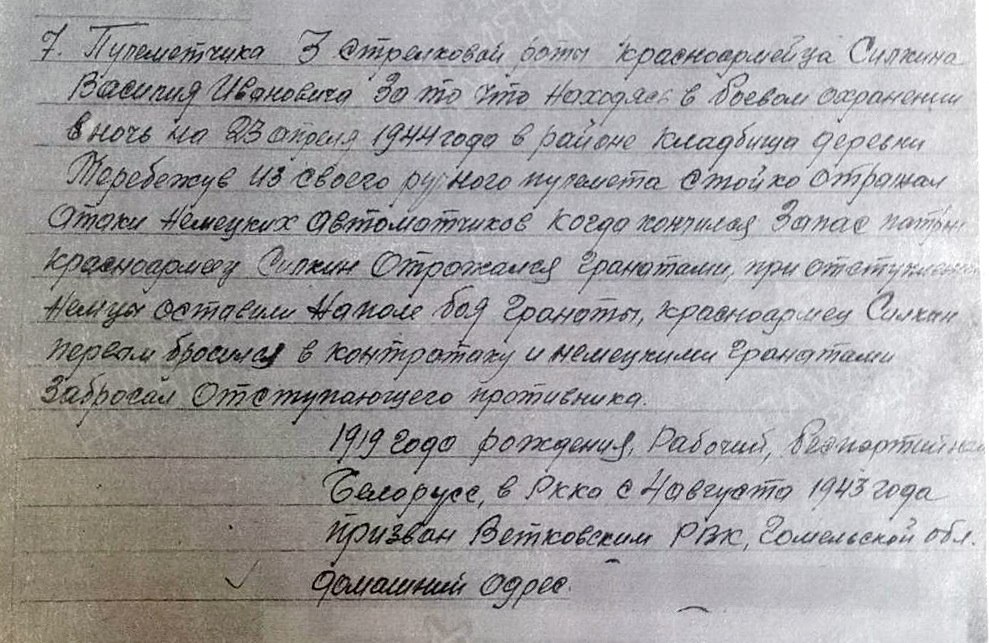 7. Пулеметчика 3 стрелковой роты красноармейца Силкина
Василия Ивановича За то что находясь в боевом охранении
в ночь на 23 апреля 1944 года в районе кладбища деревни
Теребежув из своего ручного пулемета стойко отражал
атаки немецких автоматчиков когда кончился запас патрон
красноармеец Силкин Отражался гранатами, при отступлении
Немцы оставили На поле боя гранаты, красноармец Силкин
первым бросился в контратаку и немецкими гранатами
Забросал Отступающего противника.
1919 года рождения, Рабочий, беспартийный
Белорусс, в Ркка с 4 августа 1943 года
призван Ветковским РВК, Гомельской обл.
домашний адрес.